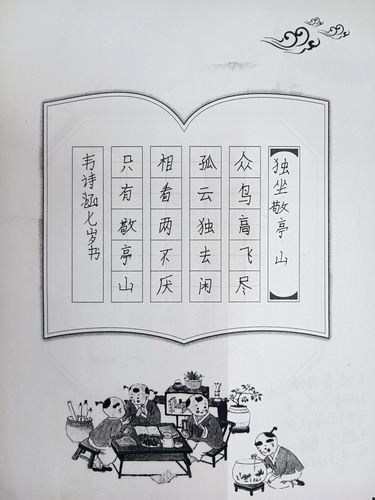 独坐敬亭山
众鸟高飞尽
孤云独去闲
相看两不厌
只有敬亭山
韦诗涵七岁书